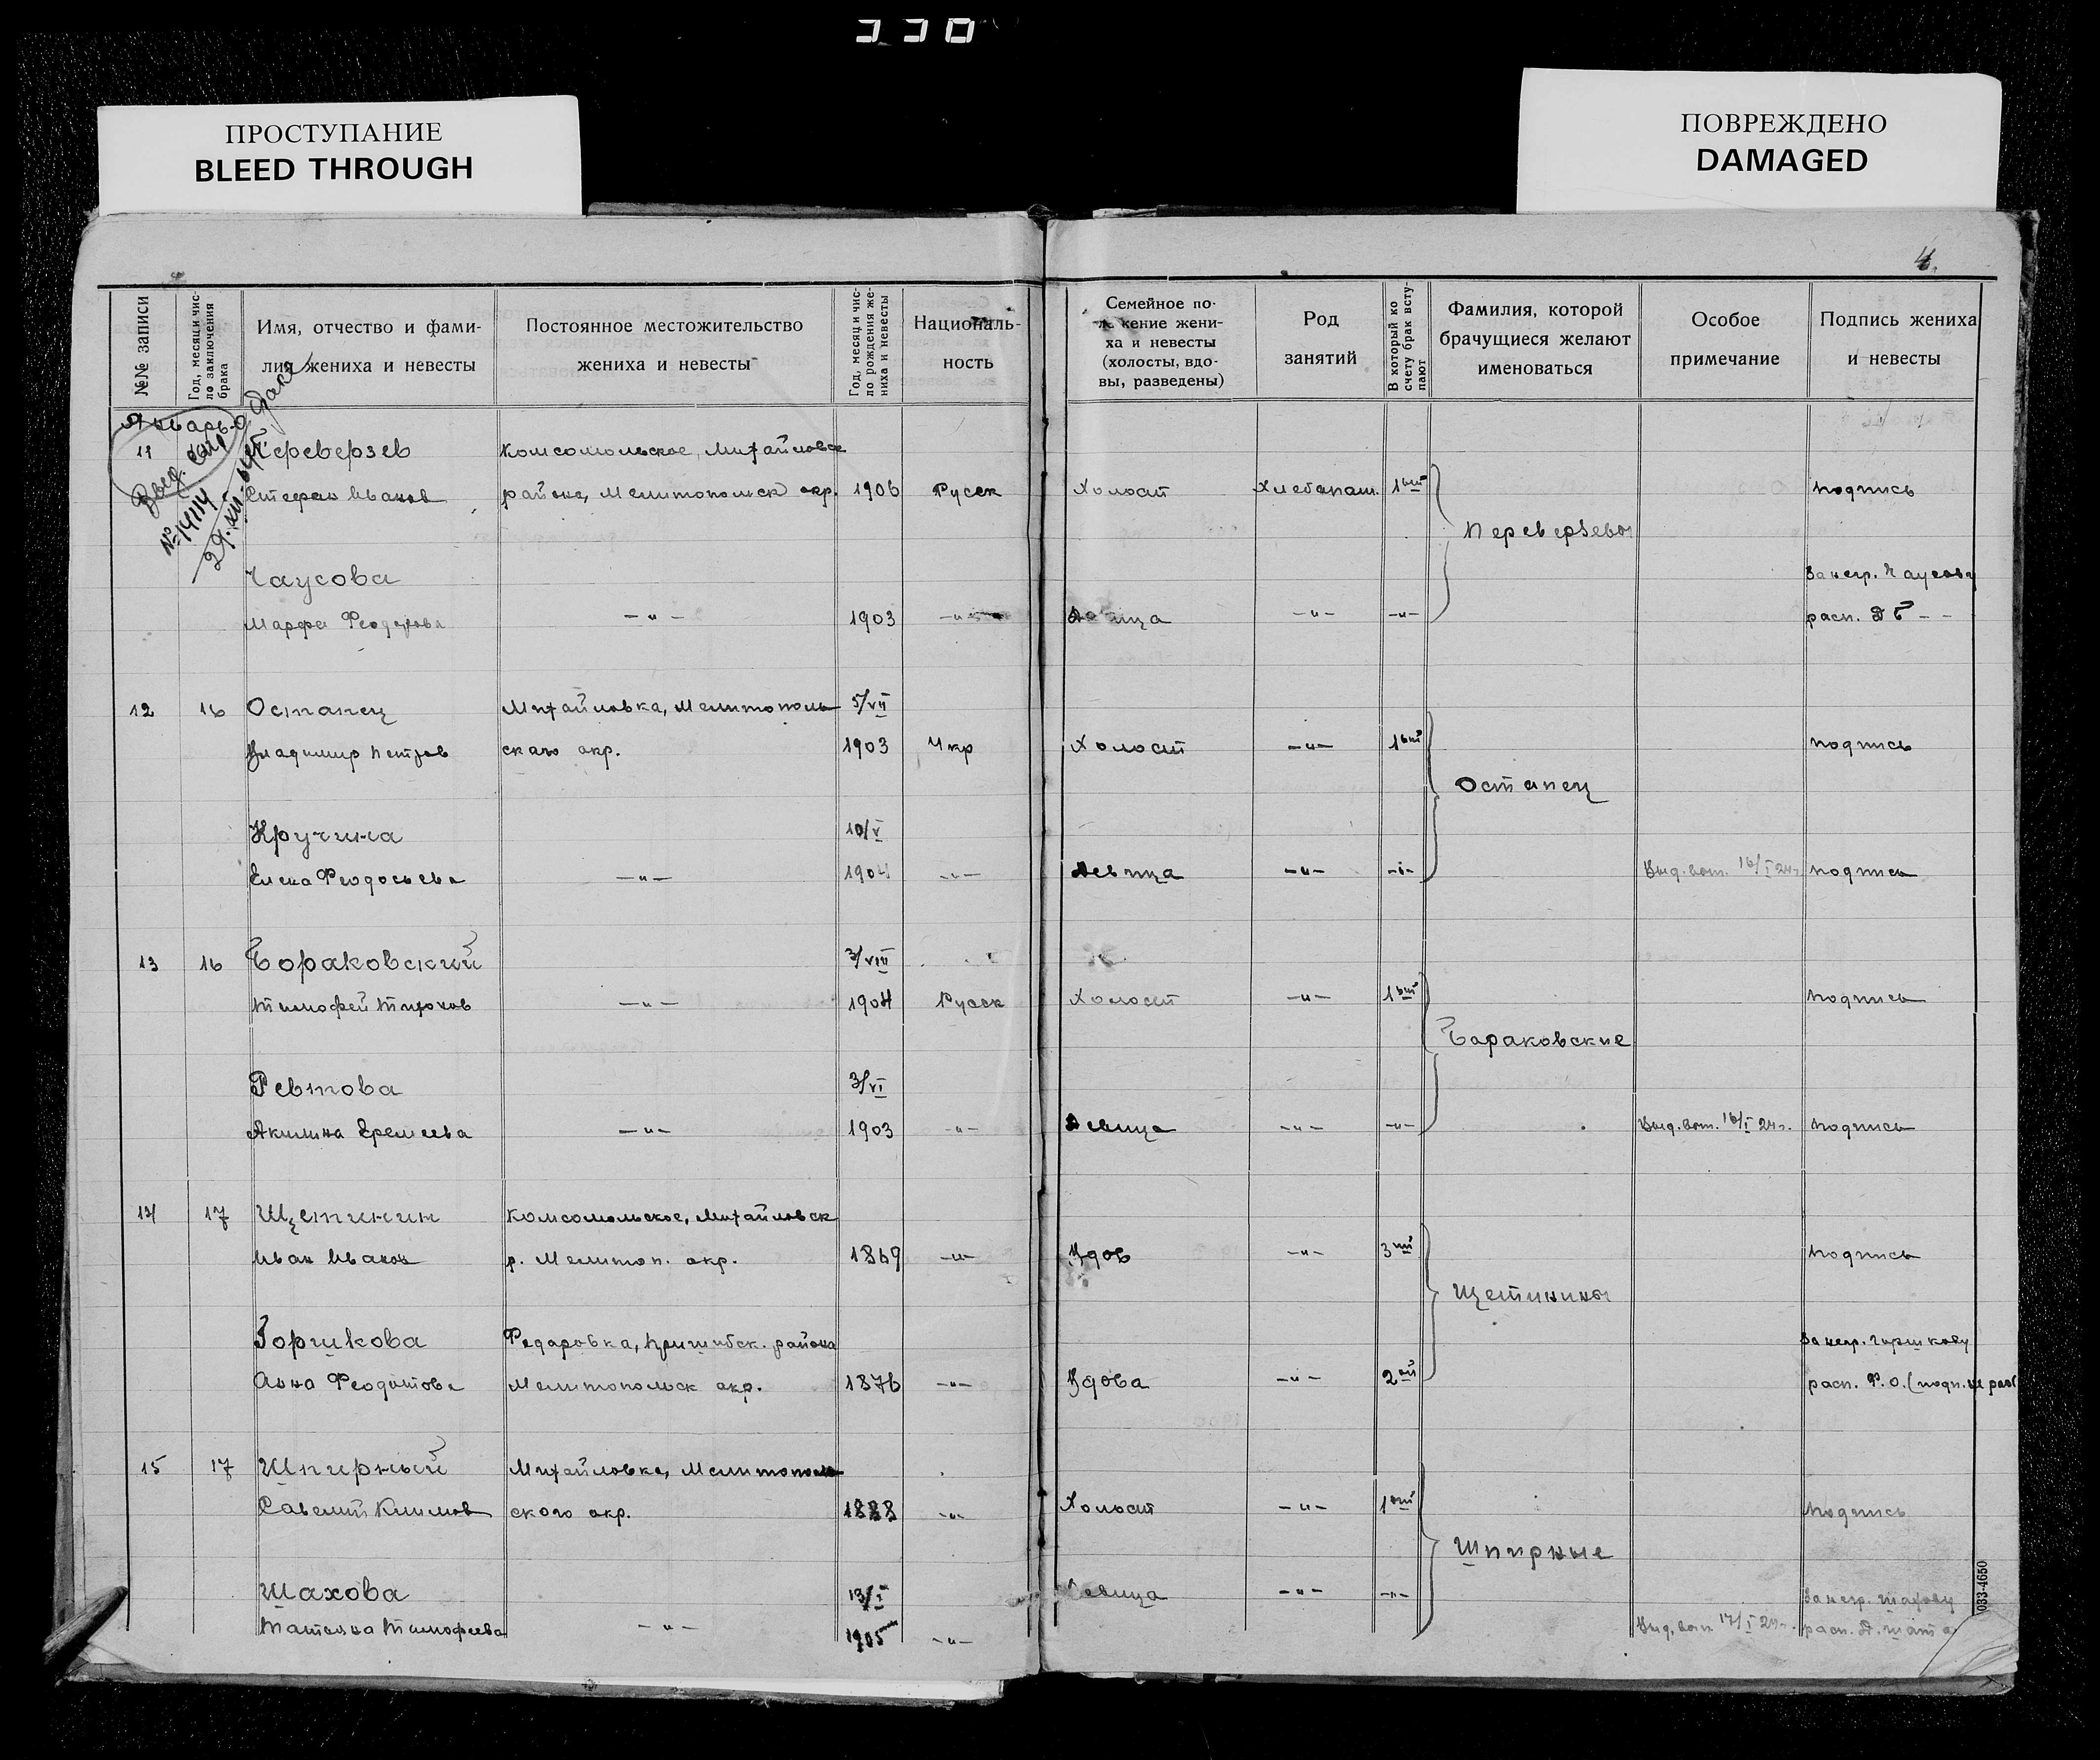 330
ПРОСТУПАНИЕ
BLEED THROUGH
ПОВРЕЖДЕНО
DAMAGED
4.
№№ записи
Год, месяц и чис-
ло заключения
брака
Имя, отчество и фами-
лия жениха и невесты
Постоянное местожительство
жениха и невесты
Год, месяц и чис-
ло рождения же-
ниха и невесты
Националь-
ность
Семейное по-
жение жени-
ха и невесты
(холосты, вдо-
вы, разведены)
Род
занятий
В который ко
счету брак всту-
пают
Фамилия, которой
брачущиеся желают
именоваться
Особое
примечание
Подпись жениха
и невесты
Январь
Выд.
№ 14114
29.XII.
11 Переверзев Комсомольское, Михайловск
Стефан Иванов района, Мелитопольск окр. 1906 Русск Холост Хлебопаш. 1ый подпись
Переверзевы
Чаусова За негр. Чаусову
Марфа Феодорова -"- 1903 -"- Девица -"- -"- расп.
12 16 Остапец Михайловка, Мелитополь 5/VII
Владимир Петров ского окр. 1903 Укр Холост -"- 1ый подпись
Остапец
Кручина 10/V
Елена Феодосьева -"- 1904 -"- Девица -"- -"- Выд. вып. 16/I 24 г. подпись
13 16 Бораковский 3/VIII
Тимофей Тихонов -"- 1904 Русск Холост -"- 1ый подпись
Бораковские
Ревтова 3/VI
Акилина Еремеева -"- 1903 -"- Девица -"- -"- Выд. вып. 16/I 24 г. подпись
14 17 Щетинин Комсомольское, Михайловск
Иван Иванов р. Мелитоп. окр. 1869 -"- Вдов -"- 3ий подпись
Щетинины
Горшкова Федоровка, Пришибск. района За негр. Горшкову
Анна Феодотова Мелитопольск окр. 1876 -"- Вдова -"- 2ой расп. Ф. О. (подп. не разб
15 17 Шпирный Михайловка, Мелитополь
Савелий Климов ского окр. 1888 -"- Холост -"- 1ый подпись
Шпирные
Шахова 13/I Девица -"- -"- За негр. Шахову
Татьяна Тимофеева -"- 1905 -"- Выд. вып. 17/I 24 г. расп.
033-4650